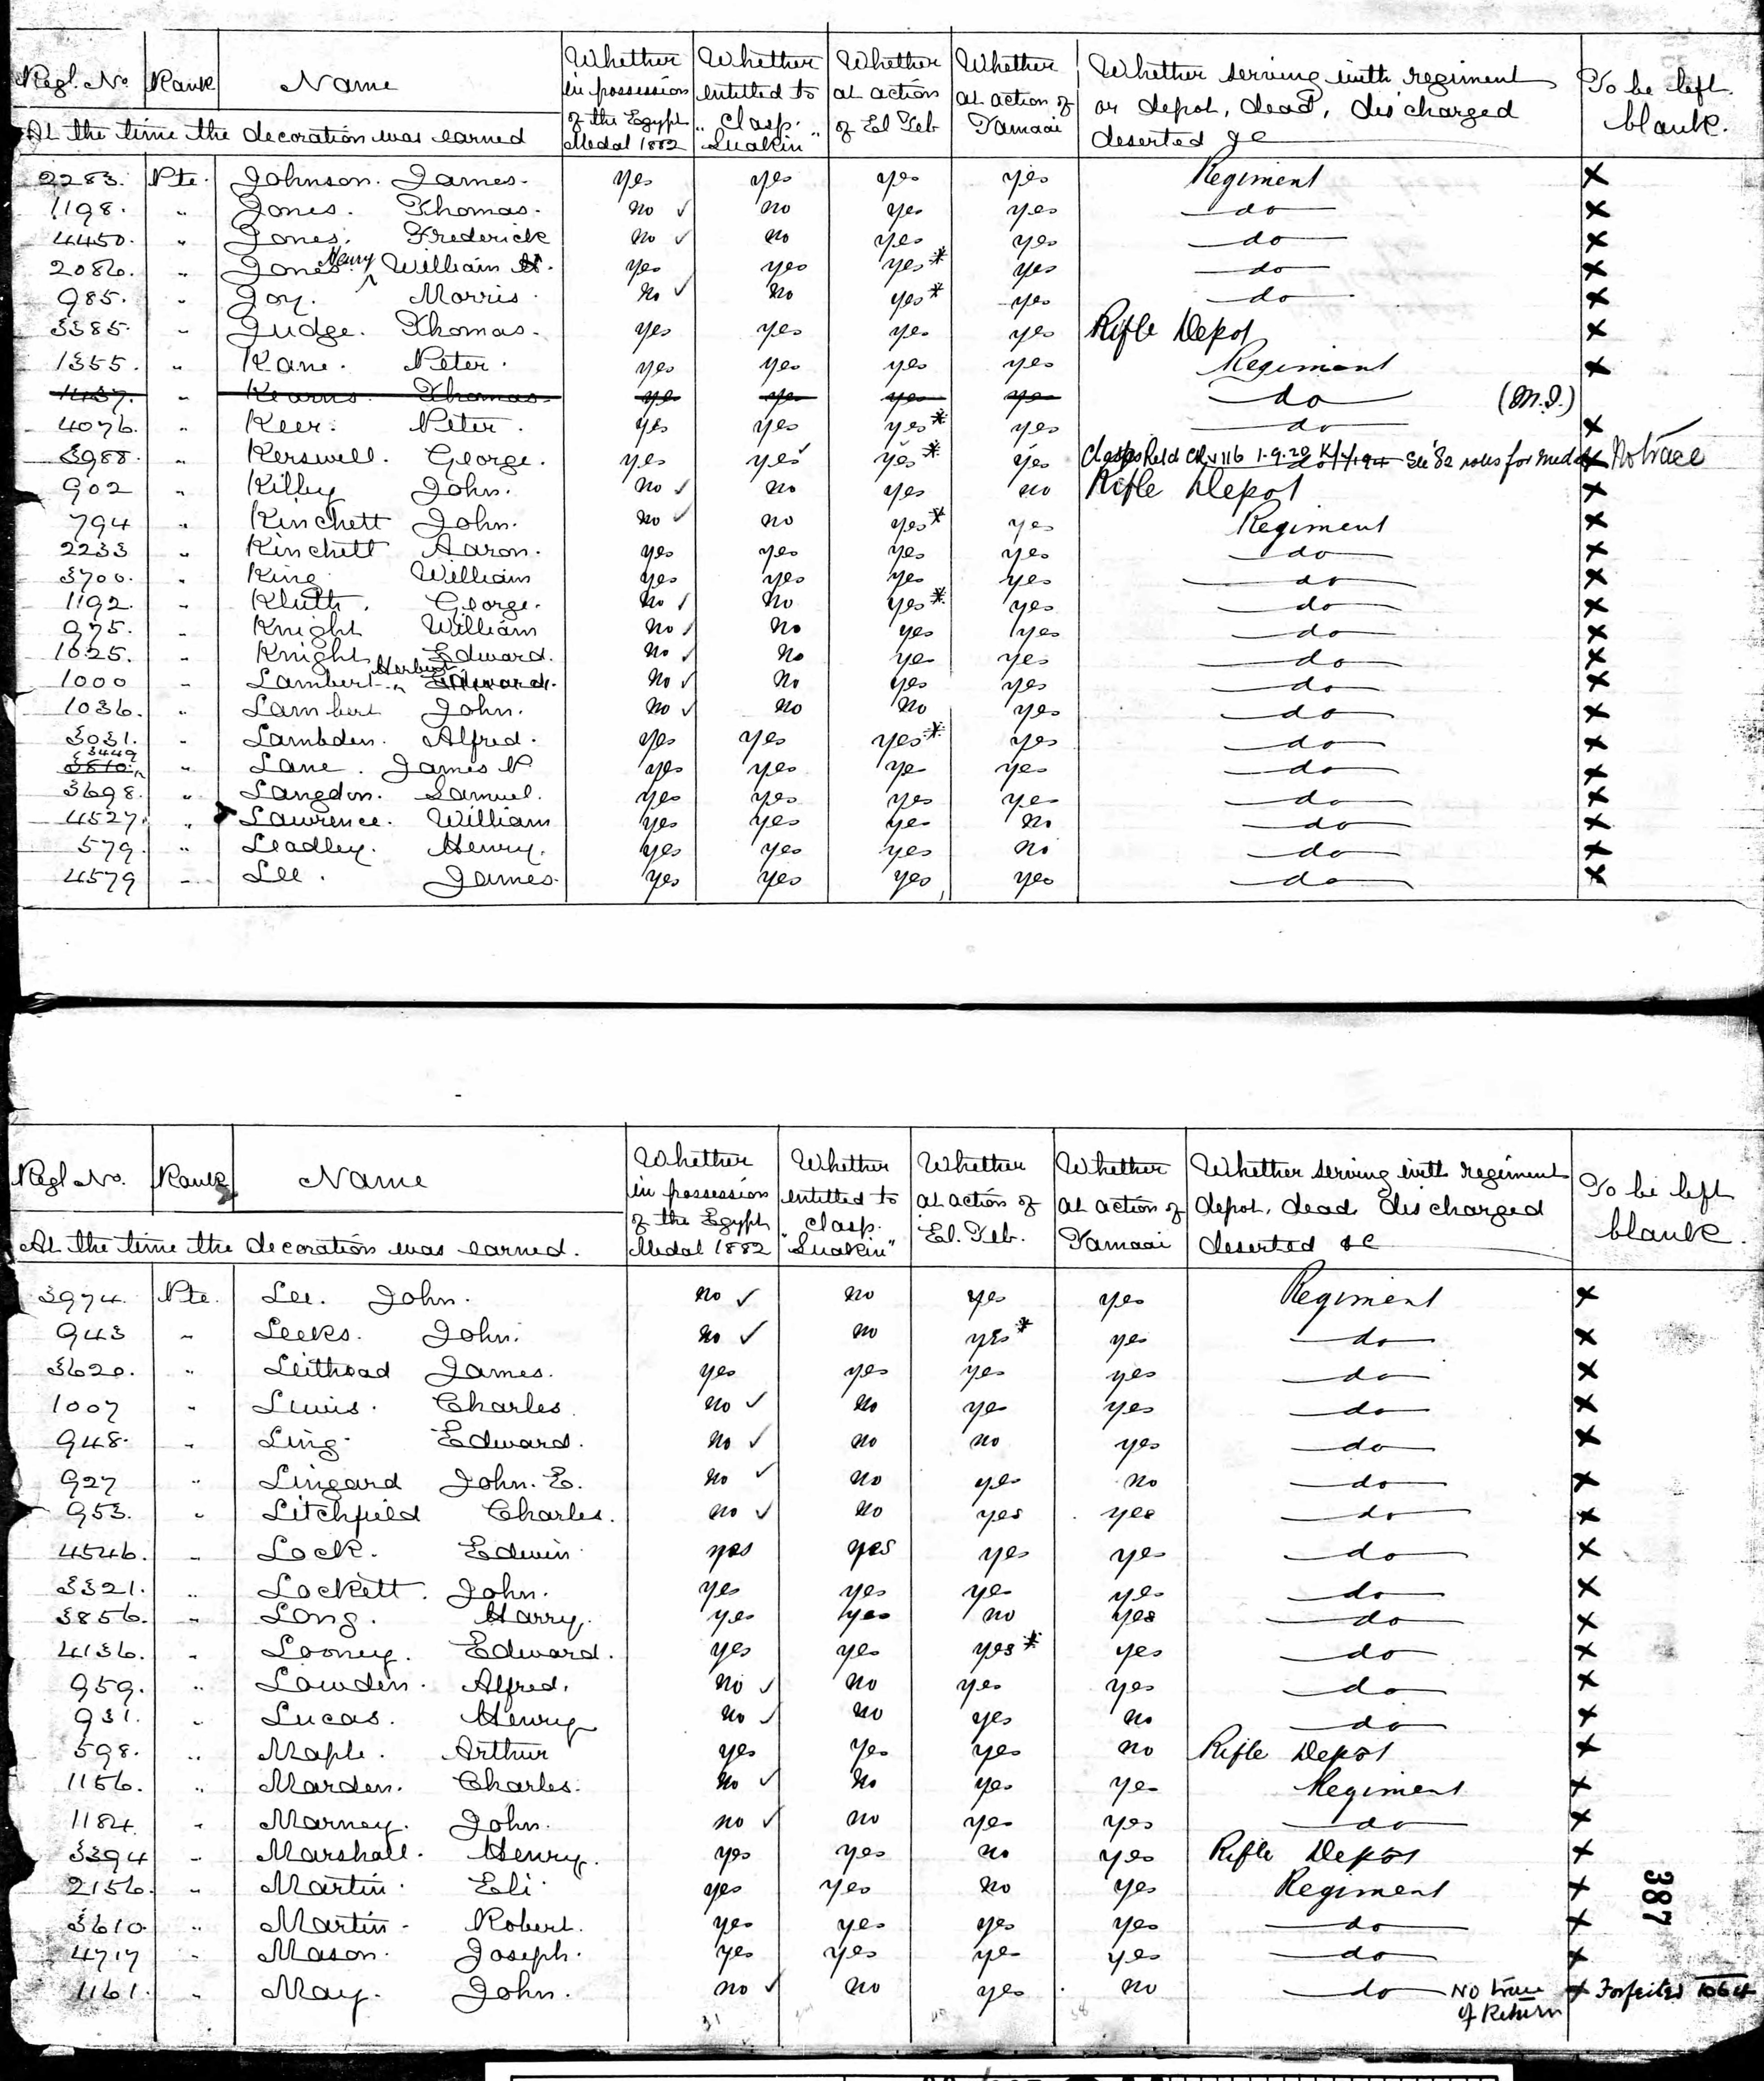 Regl. No. Rank Name Whether in possession of the Egypt Medal 1882 Whether entitled to clasp. "Suakin" Whether at action of El Teb Whether at action of Tamaai Whether serving with regiment or depot, dead, discharged deserted &c To be left blank.
At the time the decoration was earned
2283. Pte. Johnson. James. yes yes yes yes Regiment X
1198. " Jones. Thomas. no ✓ no yes yes do X
4450. " Jones. Frederick no ✓ no yes yes do X
2086. " Jones. Henry William H. yes yes yes* yes do X
985. " Joy. Morris. no ✓ no yes* yes do X
3385. " Judge. Thomas. yes yes yes yes Rifle Depot X
1355. " Kane. Peter. yes yes yes yes Regiment X
1437. " Kearns. Thomas. yes yes yes yes do (M.I.)
4076. " Keer. Peter. yes yes yes* yes do X
3988. " Kerswell. George. yes yes ✓ yes* yes Clasps Retd 1.9.20 See '82 rolls for medal X No trace
902 " Killey John. no ✓ no yes no Rifle Depot X
794 " Kinchett John. no ✓ no yes* yes Regiment X
2233 " Kinchett Aaron. yes yes yes yes do X
3700. " King William yes yes yes yes do X
1192. " Kluth. George. no ✓ no yes* yes do X
975. " Knight William no ✓ no yes yes do X
1025. " Knight Edward. no ✓ no yes yes do X
1000 " Lambert Herbert Edward. no ✓ no yes yes do X
1036. " Lambert John. no ✓ no no yes do X
3031. " Lambden. Alfred. yes yes yes* yes do X
3449 " Lane. James P yes yes ye yes do X
3698. " Langdon. Samuel. yes yes yes yes do X
4527. " Lawrence. William yes yes yes no do X
579. " Leadley. Henry. yes yes yes no do X
4579 " Lee. James. yes yes yes yes do X
Regl No. Rank Name Whether in possession of the Egypt Medal 1882 Whether entitled to clasp. "Suakin" Whether at action of El. Teb. Whether at action of Tamaai Whether serving with regiment depot, dead discharged deserted &c To be left blank.
At the time the decoration was earned.
3974. Pte. Lee. John. no ✓ no yes yes Regiment X
943 " Leeks. John. no ✓ no yes* yes do X
3620. " Leithead James. yes yes yes yes do X
1007 " Lewis. Charles. no ✓ no yes yes do X
948. " Ling. Edward. no ✓ no no yes do X
927 " Lingard John. E. no ✓ no yes no do X
953. " Litchfield Charles. no ✓ no yes yes do X
4546. " Lock. Edwin yes yes yes yes do X
3321. " Lockett. John. yes yes yes yes do X
3856. " Long. Harry. yes yes no yes do X
4136. " Looney. Edward. yes yes yes* yes do X
959. " Lowden. Alfred. no ✓ no yes yes do X
931. " Lucas. Henry no ✓ no yes no do X
598. " Maple. Arthur yes yes yes no Rifle Depot X
1156. " Marden. Charles. no ✓ no yes yes Regiment X
1184. " Marney. John. no ✓ no yes yes do X
3394 " Marshall. Henry. yes yes no yes Rifle Depot X
2156. " Martin. Eli. yes yes no yes Regiment X
3610. " Martin. Robert. yes yes yes yes do X
4717 " Mason. Joseph. yes yes yes yes do X
1161. " May. John. no ✓ no yes no do No trace of Return X Forfeited 1064
387